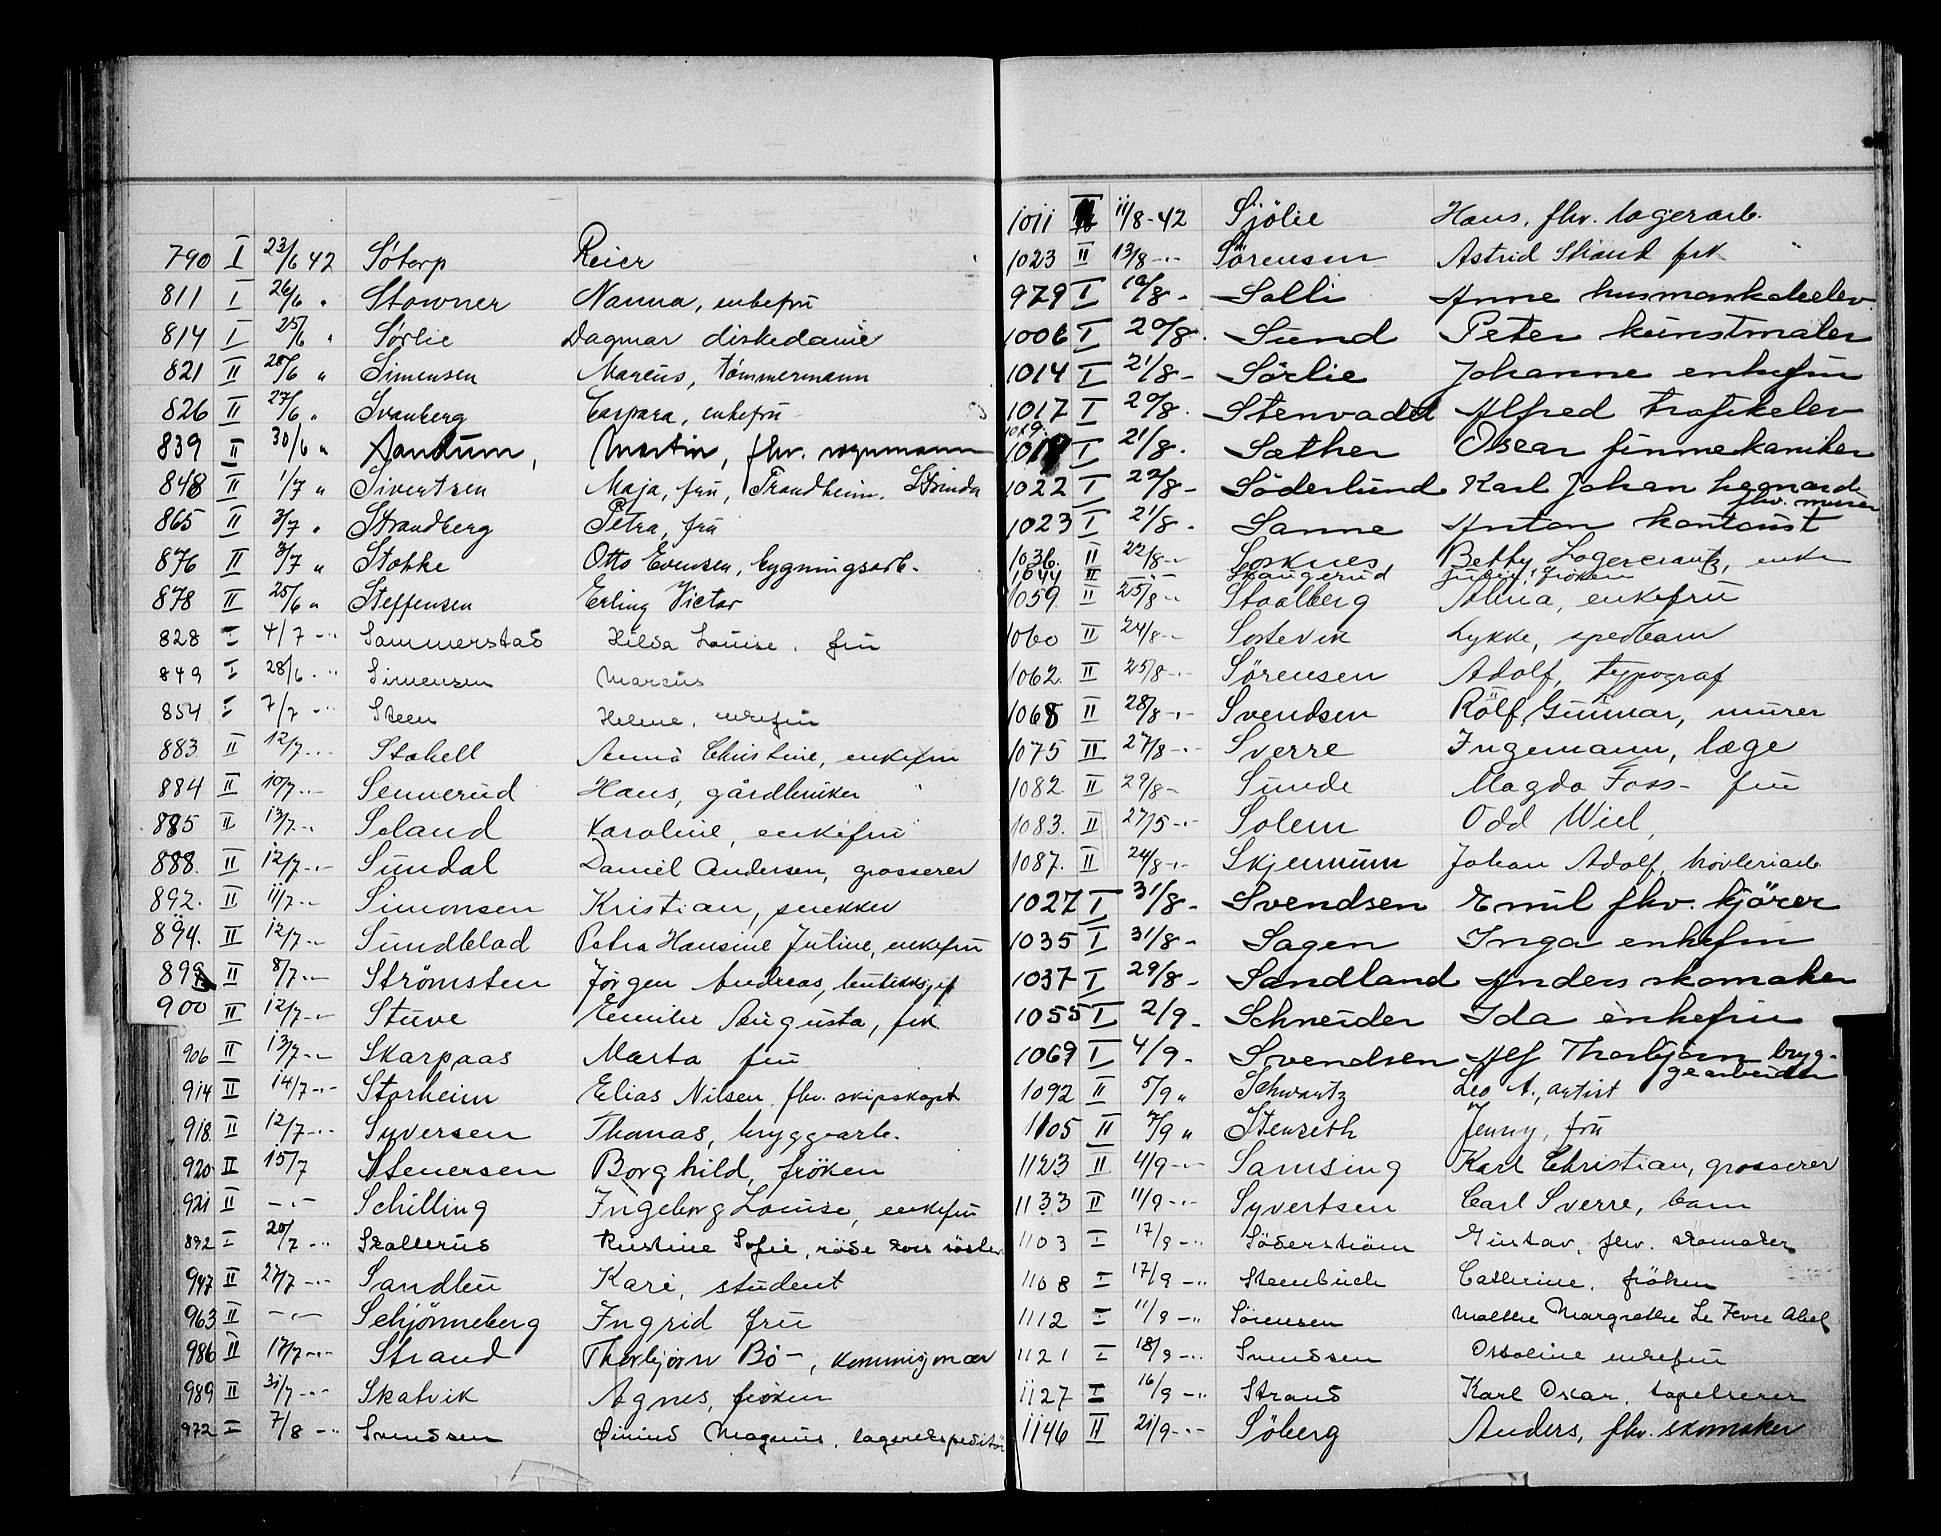 790 I 23/6 42 Søterp Reier
811 I 26/6 " Stowner Nanna, enkefru
814 I 25/6 " Sørlie Dagmar diskedame
821 II 28/6 " Simensen Marcus, tømmermann
826 II 27/6 " Svanberg Caspara, enkefru
839 II 30/6 " Sandum, Martin, fhv. vognmann
848 II 1/7 " Sivertsen Maja, fru, Trondheim. Strinda
865 II 3/7 " Strandberg Petra, fru
876 II 3/7 " Stokke Otto Evensen, bygningsarb.
878 II 25/6 " Steffensen Erling Victor
828 I 4/7 -"- Sommerstad Hilda Louise, fru
849 I 28/6 -"- Simensen Marcus
854 I 7/7 -"- Steen Helene, enkefru
883 II 12/7 -"- Stakell Anna Christine, enkefru
884 II 10/7 -"- Sennerud Hans, gårdbruker
885 II 13/7 -"- Seland Karoline, enkefru
888. II 12/7 -"- Sundal Daniel Andersen, grosserer
892. II 11/7 -"- Simonsen Kristian, snekker
894. II 12/7 -"- Sundblad Petra Hansine Jutine, enkefru
899 II 8/7 -"- Strömsten Jörgen Andreas, butikksjef
900 II 12/7 -"- Stuve Emilie Augusta, frk
906 II 13/7 -"- Skarpaas Marta fru
914 II 14/7 -"- Storheim Elias Nilsen fhv. skipskapt
918 II 12/7 -"- Syversen Thomas, bryggearb.
920 II 15/7 Stenersen Borghild, fröken
921 II -"- Schilling Ingeborg Louise, enkefru
892 I 20/7 -"- Skallerud Kristine Sofie, röde kors söster
947 II 27/7 -"- Sandbu Kari, student
963 II -"- Schjönneberg Ingrid fru
986 II 17/7 -"- Strand Thorbjörn Bö-, kommisjonær
989 II 31/7 -"- Skatvik Agnes, fröken
972 I 7/8 -"- Svendsen Øivind Magnus, lagerekspeditör
1011 II 11/8-42 Sjölie Hans, fhv. lagerarb.
1023 II 13/8 -"- Sörensen Astrid Strand frk
979 I 19/8 - Solli Anne husmorskoleelev
1006 I 20/8. Sund Peter kunstmaler
1014 I 21/8 - Sörlie Johanne enkefru
1017 I 20/8. Stenvadet Alfred trafikelev
1019. I 21/8. Sæther Oscar finmekaniker
1022 I 22/8 - Söderlund Karl Johan hegnard fhv. murer
1023 I 21/8. Sanne Anton kontorist
1036. II 22/8 -"- Soknes Betty Lagercrantz, enke
1044 II -"- Skaugerud Julie, fröken
1059. II 25/8 -"- Staalberg Alma, enkefru
1060 II 24/8 -"- Sortevik Lykke, spedbarn
1062. II 25/8 -"- Sørensen Adolf, typograf
1068 II 28/8 -"- Svendsen Rolf Gunnar, murer
1075 II 27/8 -"- Sverre Ingemann, læge
1082. II 29/8 - Sunde Magda Foss- fru
1083. II 27/5 -"- Solem Odd Wiel,
1087. II 24/8 -"- Skjennum Johan Adolf, høvleriarb
1027 I 31/8 - Svendsen Emil fhv. kjörer
1035 I 31/8 - Sagen Inga enkefru
1037 I 29/8 - Sandland Anders skomaker
1055 I 2/9 - Schneider Ida enkefru
1069 I 4/9 - Svendsen Alf Thorbjörn bryggearbeider
1092 II 5/9 " Schwartz Leo A., artist
1105 II 7/9 " Stenseth Jenny, fru
1123 II 4/9 -"- Samsing Karl Christian, grosserer
1133 II 11/9 -"- Syvertsen Carl Sverre, barn
1103 I 17/9 -"- Söderström Gustav, fhv. skomaker
1108 I 17/9 -"- Steenbuch Cathrine, fröken
1112 I 11/9 -"- Sörensen Malthe Margrethe Le Fevre Abel
1121 I 18/9 -"- Svendsen Ottoline enkefru
1127 I 16/9 -"- Strand Karl Oskar, tapetserer
1146 II 21/9 -"- Söberg Anders, fhv. skomaker